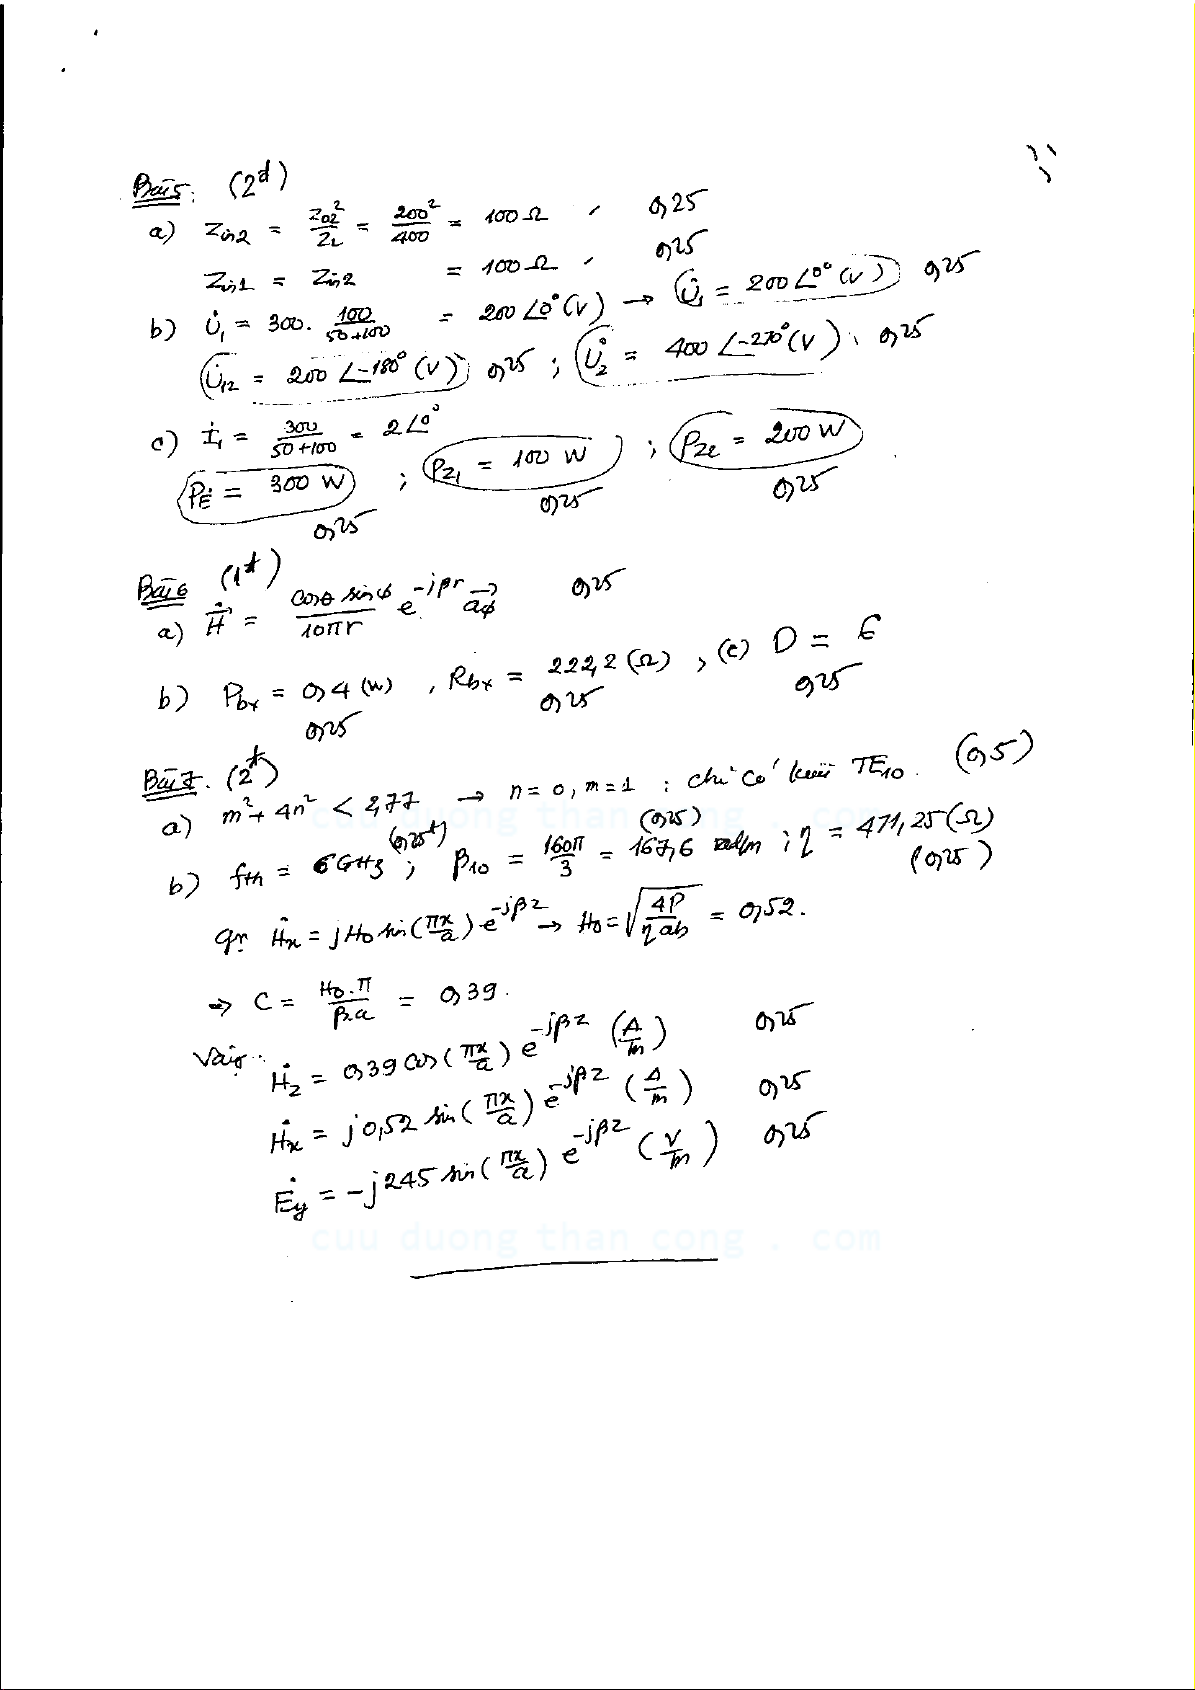 Bài 5: (2đ)
a) Zin2 = Z02²/ZL = 200²/400 = 100 Ω 0,25
Zin1 = Zin2 = 100 Ω 0,25
b) U̇1 = 300 . 100/(50+100) = 200∠0° (V) → U̇1 = 200∠0° (V) 0,25
U̇12 = 200∠-180° (V) 0,25 ; U̇2 = 400∠-270° (V) 0,25
c) İ1 = 300/(50+100) = 2∠0°
PĖ = 300 W ; PZ1 = 100 W ; PZL = 200 W
0,25 0,25 0,25
Bài 6 (1đ)
a) Ḣ = cosθ sinφ/(10πr) e^-jβr aφ 0,25
b) Pbx = 0,4 (W) , Rbx = 222,2 (Ω) , (c) D = 6
0,25 0,25 0,25
Bài 7. (2đ)
a) m² + 4n² < 2,77 → n = 0, m = 1 : chỉ có kiểu TE10. (0,5)
cuu duong than cong . com
b) fth = 6 GHz (0,25đ) ; β10 = 160π/3 = 167,6 rad/m (0,25) ; η = 471,25 (Ω) (0,25)
Ḣx = jH0 sin(πx/a) e^-jβz → H0 = √(4P/ηab) = 0,52.
⇒ C = H0.π/β.a = 0,39.
Vậy :
Ḣz = 0,39 cos(πx/a) e^-jβz (A/m) 0,25
Ḣx = j0,52 sin(πx/a) e^-jβz (A/m) 0,25
Ėy = -j245 sin(πx/a) e^-jβz (V/m) 0,25
cuu duong than cong . com